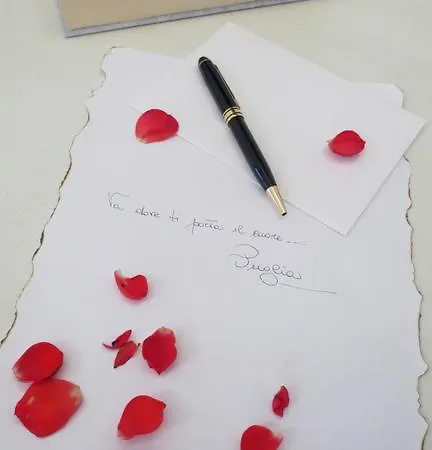 Va dove ti porta il cuore...
Puglia